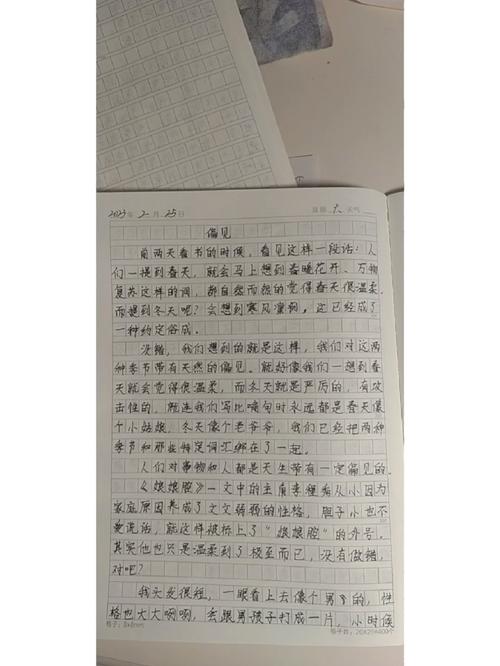 2023年 2月 25日 星期 六 天气
偏见
前两天看书的时候，看见这样一段话：人
们一提到春天，就会马上想到春暖花开、万物
复苏这样的词，都自然而然的觉得春天很温柔，
而提到冬天呢？会想到寒风凛冽，这已经成了
一种约定俗成。
没错，我们想到的就是这样，我们对这两
种季节带有天然的偏见。就好像我们一想到春
天就会觉得很温柔，而冬天就是严厉的，有攻
击性的，就连我们写比喻句时永远都是春天像
个小姑娘，冬天像个老爷爷，我们已经把两种
季节和那些特定词汇绑在了一起。
人们对事物和人都是天生带有一定偏见的。
《娘娘腔》一文中的主角 从小因为
家庭原因养成了文文弱弱的性格，胆子小也不
爱说话，就这样被标上了“娘娘腔”的外号。
其实他也只是温柔到了极至而已，没有做错，
对吧？
我头发很短，一眼看上去像个男 的，性
格也大大咧咧，会跟男孩子打成一片，小时候
格子：8x8mm 格子数：20X20=400个